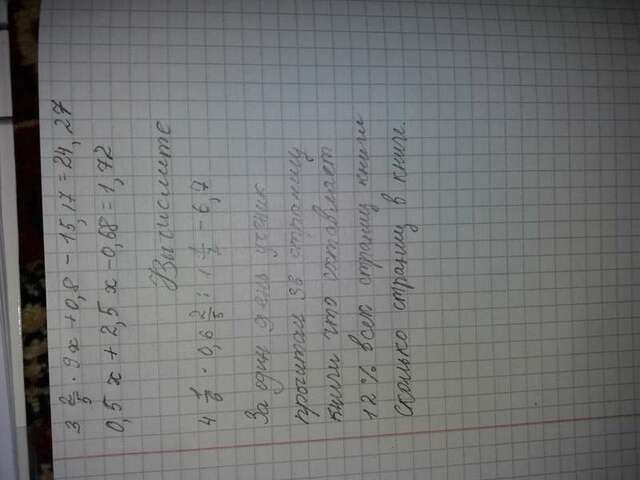 3 2/5 · 9x + 0,8 - 15,17 = 24,27
0,5 x + 2,5 x - 0,68 = 1,72
Вычислите
4 1/6 · 0,6 2/5 : 1 1/2 - 6,7
За один день ученик
прочитал 36 страниц
книги что составляет
12% всех страниц книги
сколько страниц в книге.